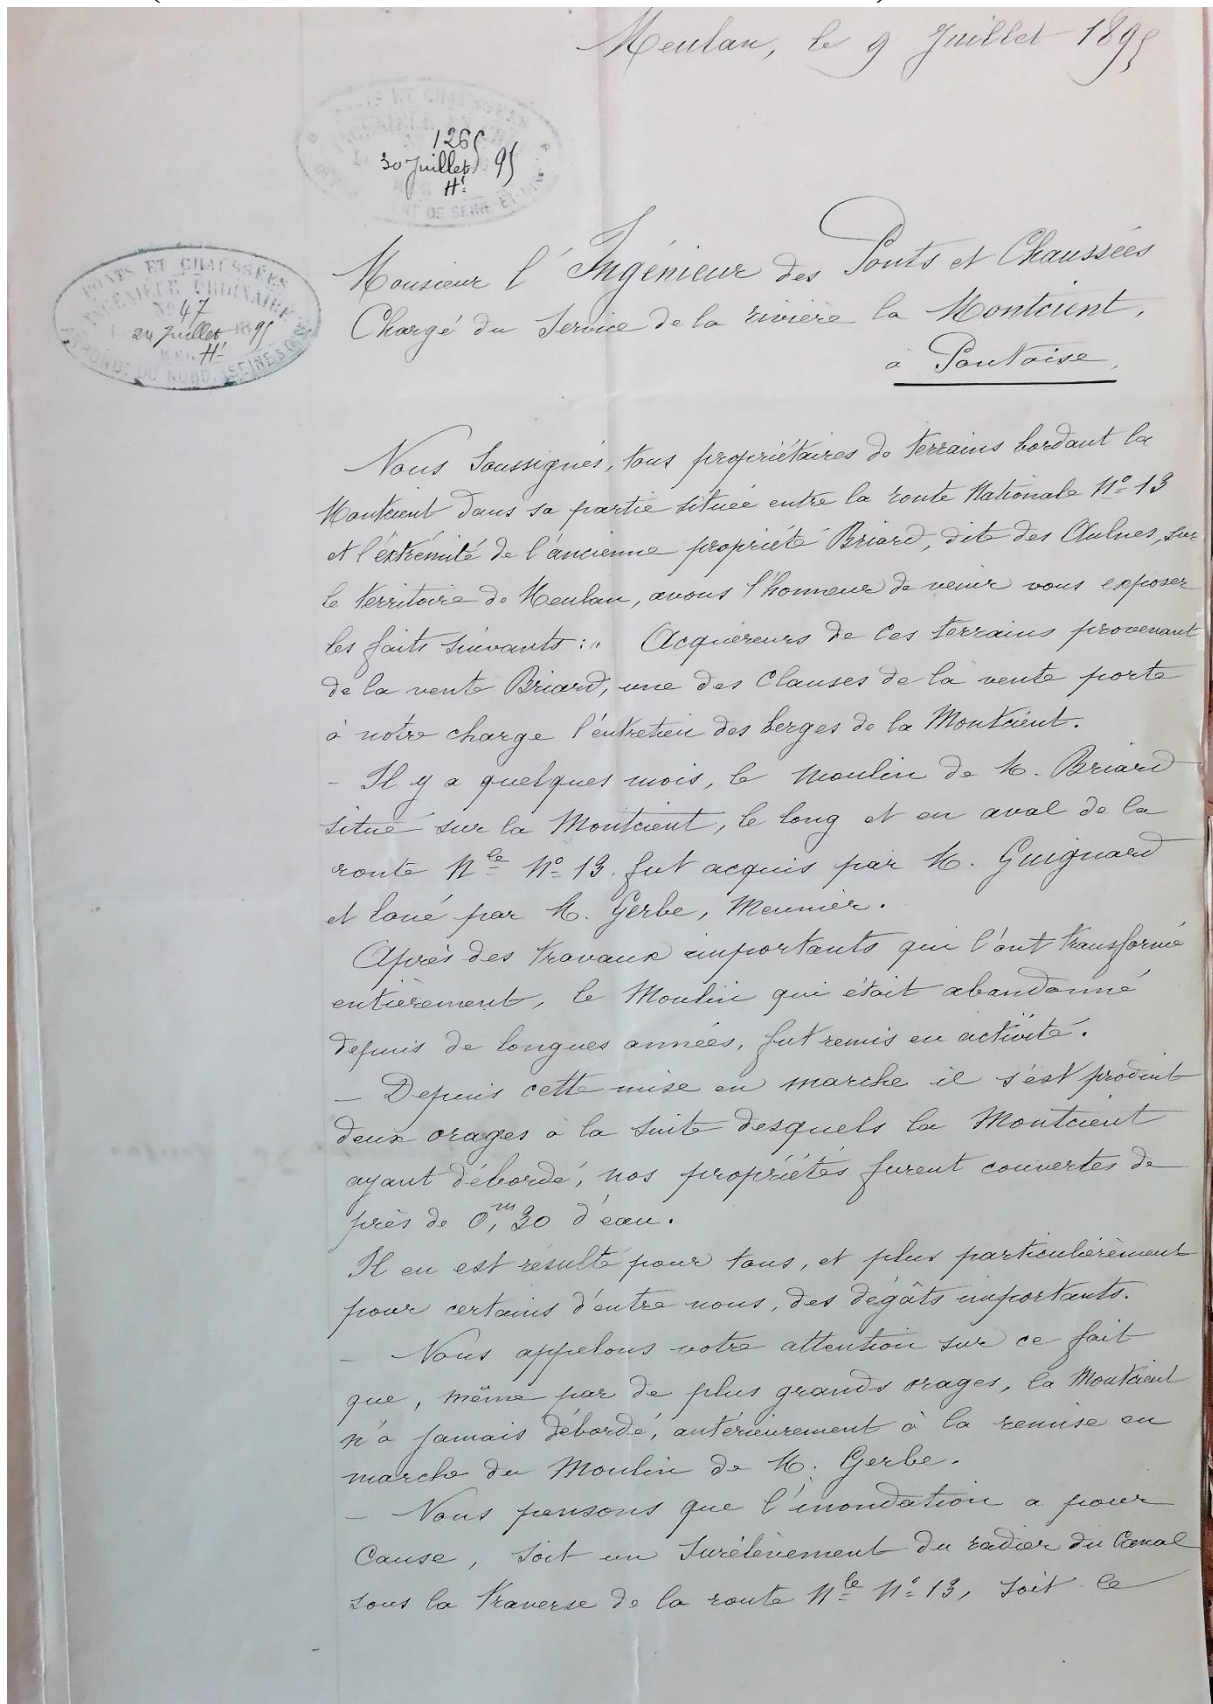 Meulan, le 9 Juillet 1895
PONTS ET CHAUSSÉES
1265
30 Juillet 95
Ht
DE SEINE-ET-
PONTS ET CHAUSSÉES
INGÉNIEUR ORDINAIRE
No 47
24 Juillet 1895
Ht
DU NORD (SEINE & OISE)
Monsieur l'Ingénieur des Ponts et Chaussées
Chargé du Service de la rivière la Montcient,
à Pontoise,
Nous Soussignés, tous propriétaires de terrains bordant la
Montcient dans sa partie située entre la route Nationale No 13
et l'éxtrémité de l'ancienne propriété Briard, dite des Aulnes, sur
le territoire de Meulan, avons l'honneur de venir vous exposer
les faits suivants :" Acquéreurs de ces terrains provenant
de la vente Briard, une des Clauses de la vente porte
à notre charge l'entretien des berges de la Montcient.
- Il y a quelques mois, le Moulin de M. Briard
situé sur la Montcient, le long et en aval de la
route Nle No 13. fut acquis par M. Guignard
et loué par M. Gerbe, Meunier.
Après des travaux importants qui l'ont transformé
entièrement, le Moulin qui était abandonné
depuis de longues années, fut remis en activité.
- Depuis cette mise en marche il s'est produit
deux orages à la suite desquels la Montcient
ayant débordé, nos propriétés furent couvertes de
près de 0,m30 d'eau.
Il en est resulté pour tous, et plus particulièrement
pour certains d'entre nous, des dégâts importants.
- Nous appelons votre attention sur ce fait
que, même par de plus grands orages, la Montcient
n'a jamais débordé, antérieurement à la remise en
marche du Moulin de M. Gerbe.
- Nous pensons que l'inondation a pour
Cause, soit un Surélèvement du radier du Canal
sous la traverse de la route Nle No 13, soit le